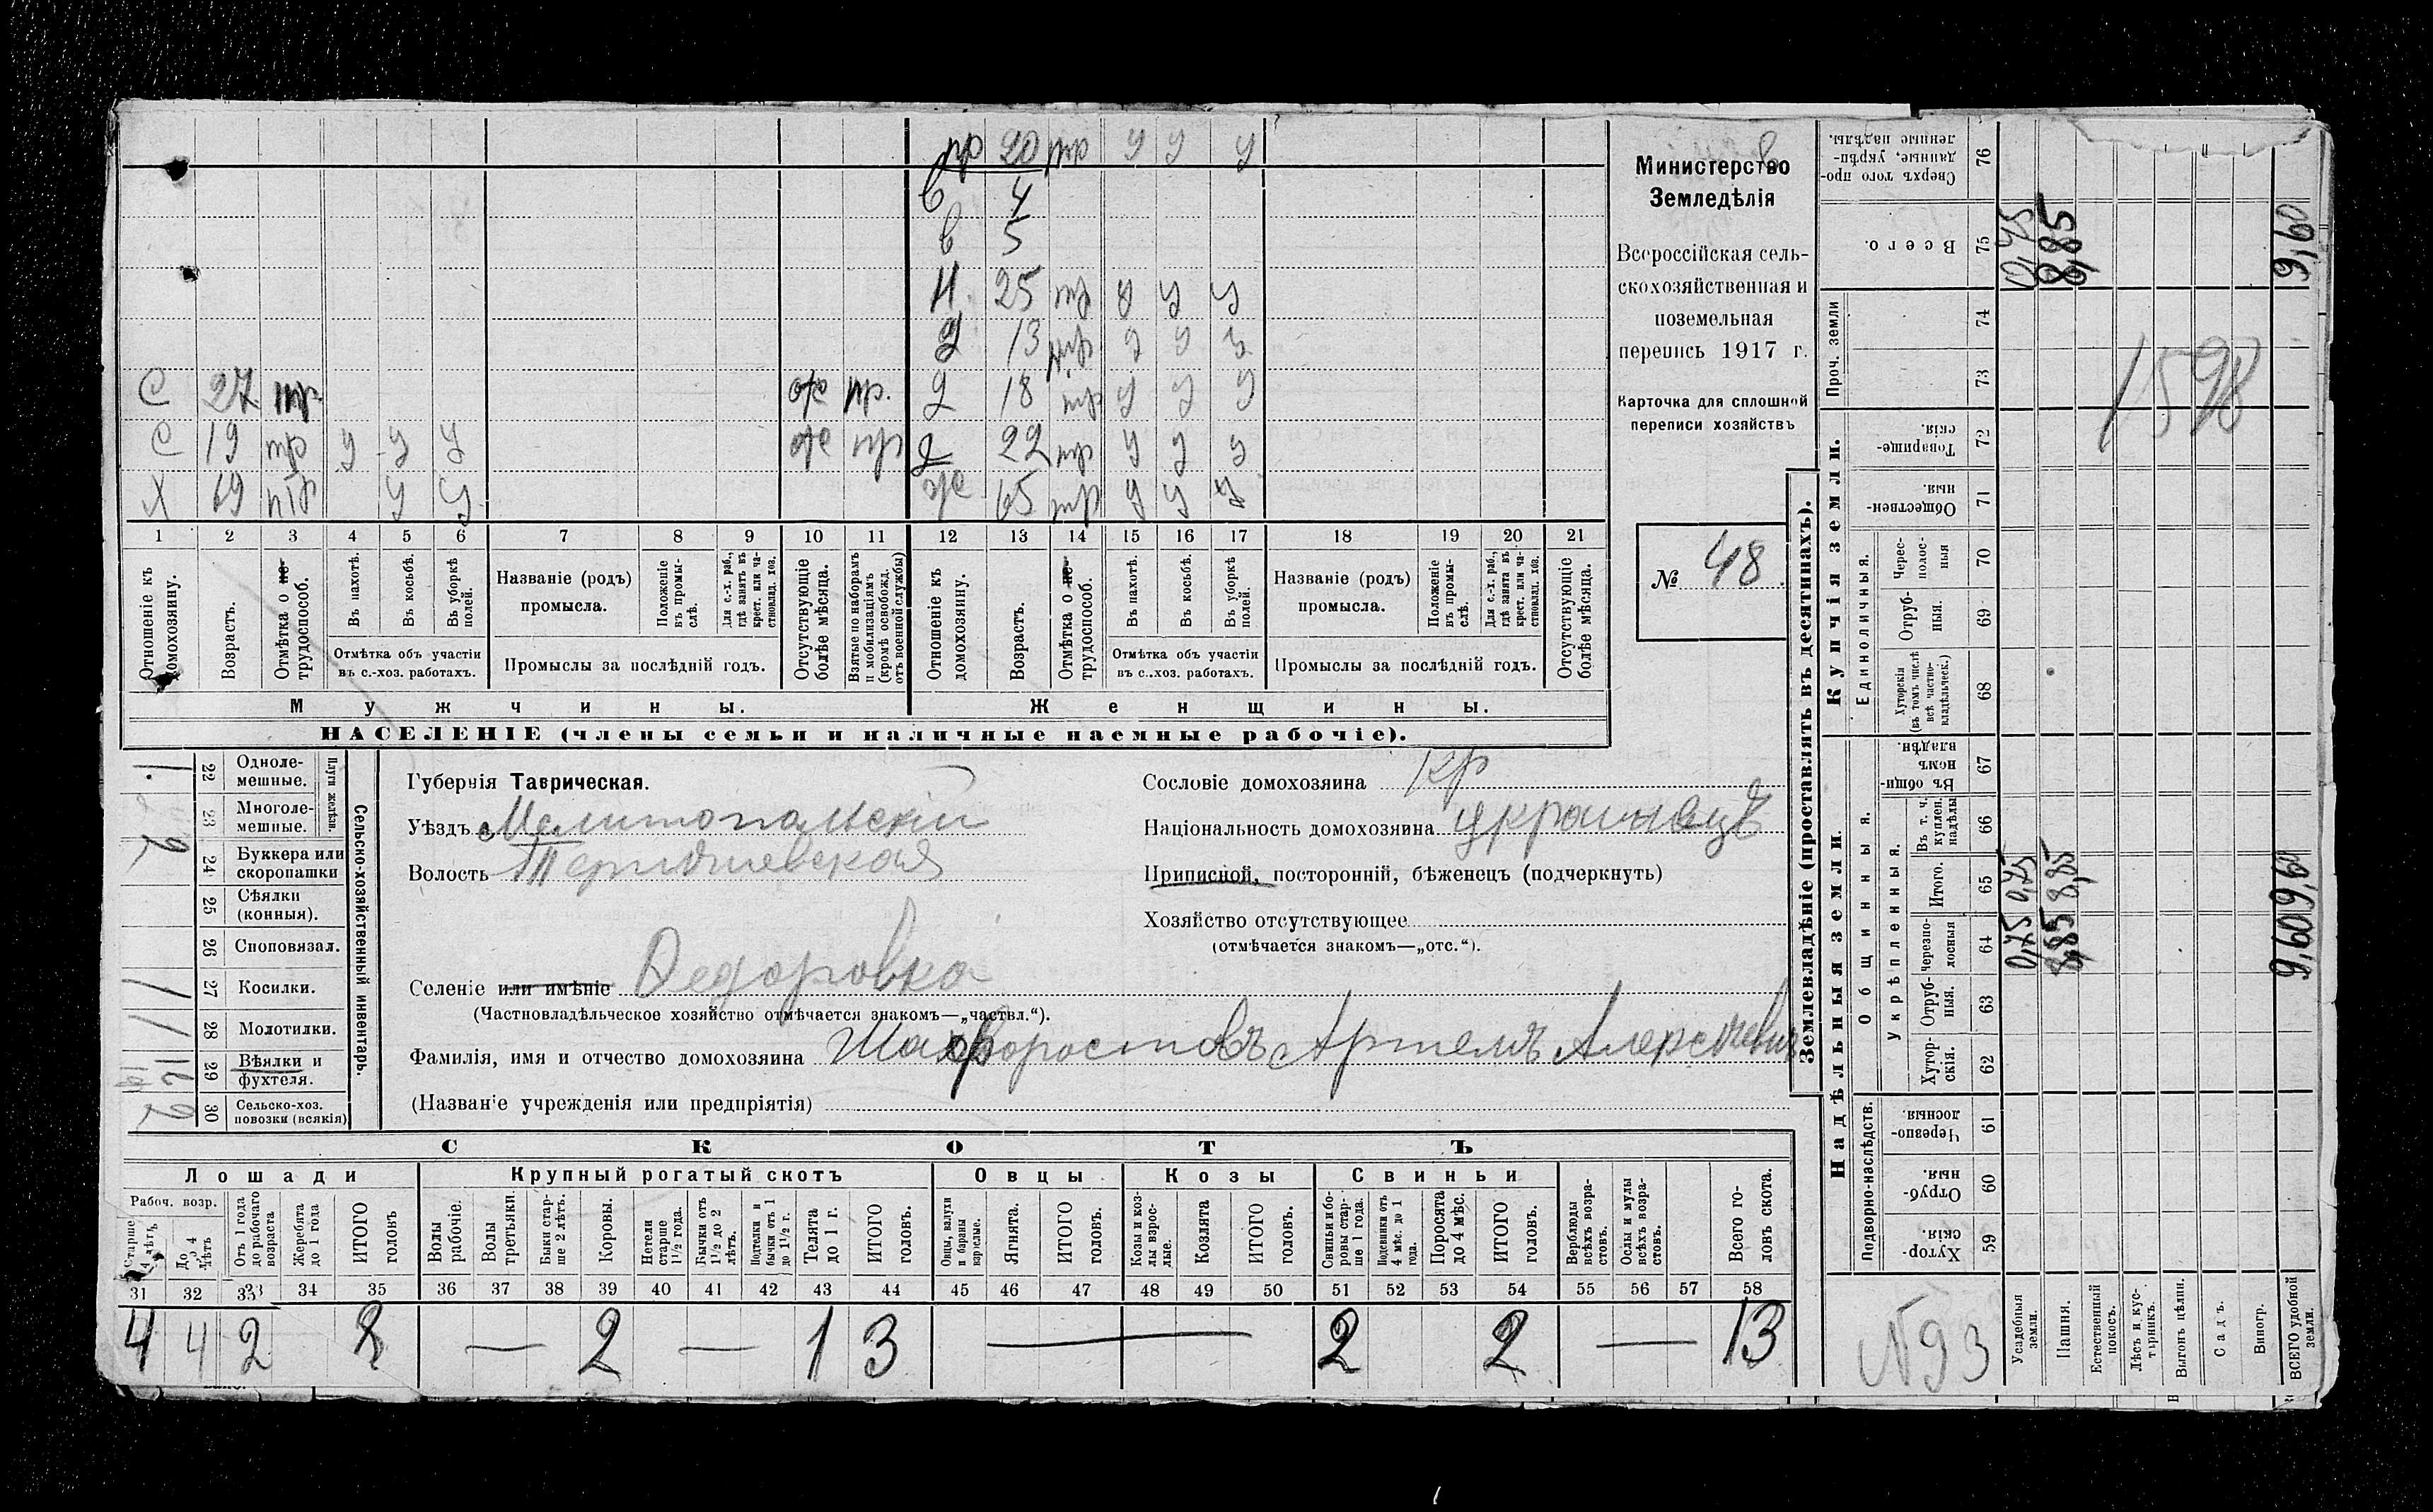 пр 20 тр у у у
в 4
в 5
Н. 25 тр у у у
д 13 тр у у у
С 27 тр. от пр. д 18 тр у у у
С 19 тр у у у от пр д 22 тр у у у
Х 69 тр у у ж 65 тр у у у
1 2 3 4 5 6 7 8 9 10 11 12 13 14 15 16 17 18 19 20 21
Отношеніе къ домохозяину.
Возрастъ.
Отмѣтка о не-трудоспособ.
Въ пахотѣ.
Въ косьбѣ.
Въ уборкѣ полей.
Отмѣтка объ участіи въ с.-хоз. работахъ.
Названіе (родъ) промысла.
Положеніе въ промы-слѣ.
Для с.-х. раб., гдѣ занятъ въ крест. или ча-стновлад. хоз.
Промыслы за послѣдній годъ.
Отсутствующіе болѣе мѣсяца.
Взятые по наборамъ и мобилизаціямъ (кромѣ освобожд. отъ военной службы)
Отношеніе къ домохозяину.
Возрастъ.
Отмѣтка о не-трудоспособ.
Въ пахотѣ.
Въ косьбѣ.
Въ уборкѣ полей.
Отмѣтка объ участіи въ с.-хоз. работахъ.
Названіе (родъ) промысла.
Положеніе въ промы-слѣ.
Для с.-х. раб., гдѣ занята въ крест. или ча-стновлад. хоз.
Промыслы за послѣдній годъ.
Отсутствующіе болѣе мѣсяца.
Мужчины. Женщины.
НАСЕЛЕНІЕ (члены семьи и наличные наемные рабочіе).
Министерство
Земледѣлія
Всероссійская сель-
скохозяйственная и
поземельная
перепись 1917 г.
Карточка для сплошной
переписи хозяйствъ
№ 48.
22 Одноле-мешные. 1
23 Многоле-мешные.
Плуги желѣзн.
24 Буккера или скоропашки 2
25 Сѣялки (конныя).
26 Споповязал.
27 Косилки. 1
28 Молотилки. 1
29 Вѣялки и фухтеля.
30 Сельско-хоз. повозки (всякія) 2
Сельско-хозяйственный инвентарь.
Губернія Таврическая.
Уѣздъ Мелитопольскій
Волость
Селеніе или имѣніе Федоровка
(Частновладѣльческое хозяйство отмѣчается знакомъ—„частвл.“).
Фамилія, имя и отчество домохозяина Шахворостовъ Артемъ Алексѣевич
(Названіе учрежденія или предпріятія)
Сословіе домохозяина кр
Національность домохозяина украинецъ
Приписной, посторонній, бѣженецъ (подчеркнуть)
Хозяйство отсутствующее
(отмѣчается знакомъ—„отс.“).
СКОТЪ
Лошади Крупный рогатый скотъ Овцы Козы Свиньи
Рабоч. возр.
Старше 4 лѣтъ
До 4 лѣтъ
Отъ 1 года до рабочаго возраста
Жеребята до 1 года
ИТОГО головъ
Волы рабочіе.
Волы третьяки.
Быки стар-ше 2 лѣтъ.
Коровы.
Нетели старше 1½ года.
Бычки отъ 1½ до 2 лѣтъ.
Подтелки и бычки отъ 1 до 1½ г.
Телята до 1 г.
ИТОГО головъ.
Овцы, валухи и бараны взрослые.
Ягнята.
ИТОГО головъ.
Козы и коз-лы взрос-лые.
Козлята
ИТОГО головъ.
Свиньи и бо-ровы стар-ше 1 года.
Подсвинки отъ 4 мѣс. до 1 года.
Поросята до 4 мѣс.
ИТОГО головъ.
Верблюды всѣхъ возра-стовъ.
Ослы и мулы всѣхъ возра-стовъ.
Всего го-ловъ скота.
31 32 33 34 35 36 37 38 39 40 41 42 43 44 45 46 47 48 49 50 51 52 53 54 55 56 57 58
4 4 2 8 — 2 — 1 3 — 2 2 — 13
Землевладѣніе (проставлять въ десятинахъ).
Надѣльныя земли. Купчія земли. Проч. земли
Подворно-наслѣдств. Общинныя. Укрѣпленныя. Единоличныя.
Хутор-скія. 59
Отруб-ныя. 60
Черезпо-лосныя. 61
Хутор-скія. 62
Отруб-ныя. 63
Черезпо-лосныя 64
Итого. 65
Въ т. ч. куплен. надѣлы 66
Въ общин-номъ владѣн. 67
Хуторскія (въ томъ числѣ всѣ частно-владѣльческ.) 68
Отруб-ныя. 69
Черес-полос-ныя 70
Обществен-ныя. 71
Товарище-скія. 72
73
74
Всего. 75
Сверхъ того про-данные, укрѣп-ленные надѣлы. 76
Усадебныя земли. 0,75 0,75 0,75
Пашня. 8,85 8,85 8,85
Естественный покосъ.
Лѣсъ и кус-тарникъ.
Выгонъ цѣлин.
Садъ.
Виногр.
ВСЕГО удобной земли. 9,60 9,60 9,60
1598
N93